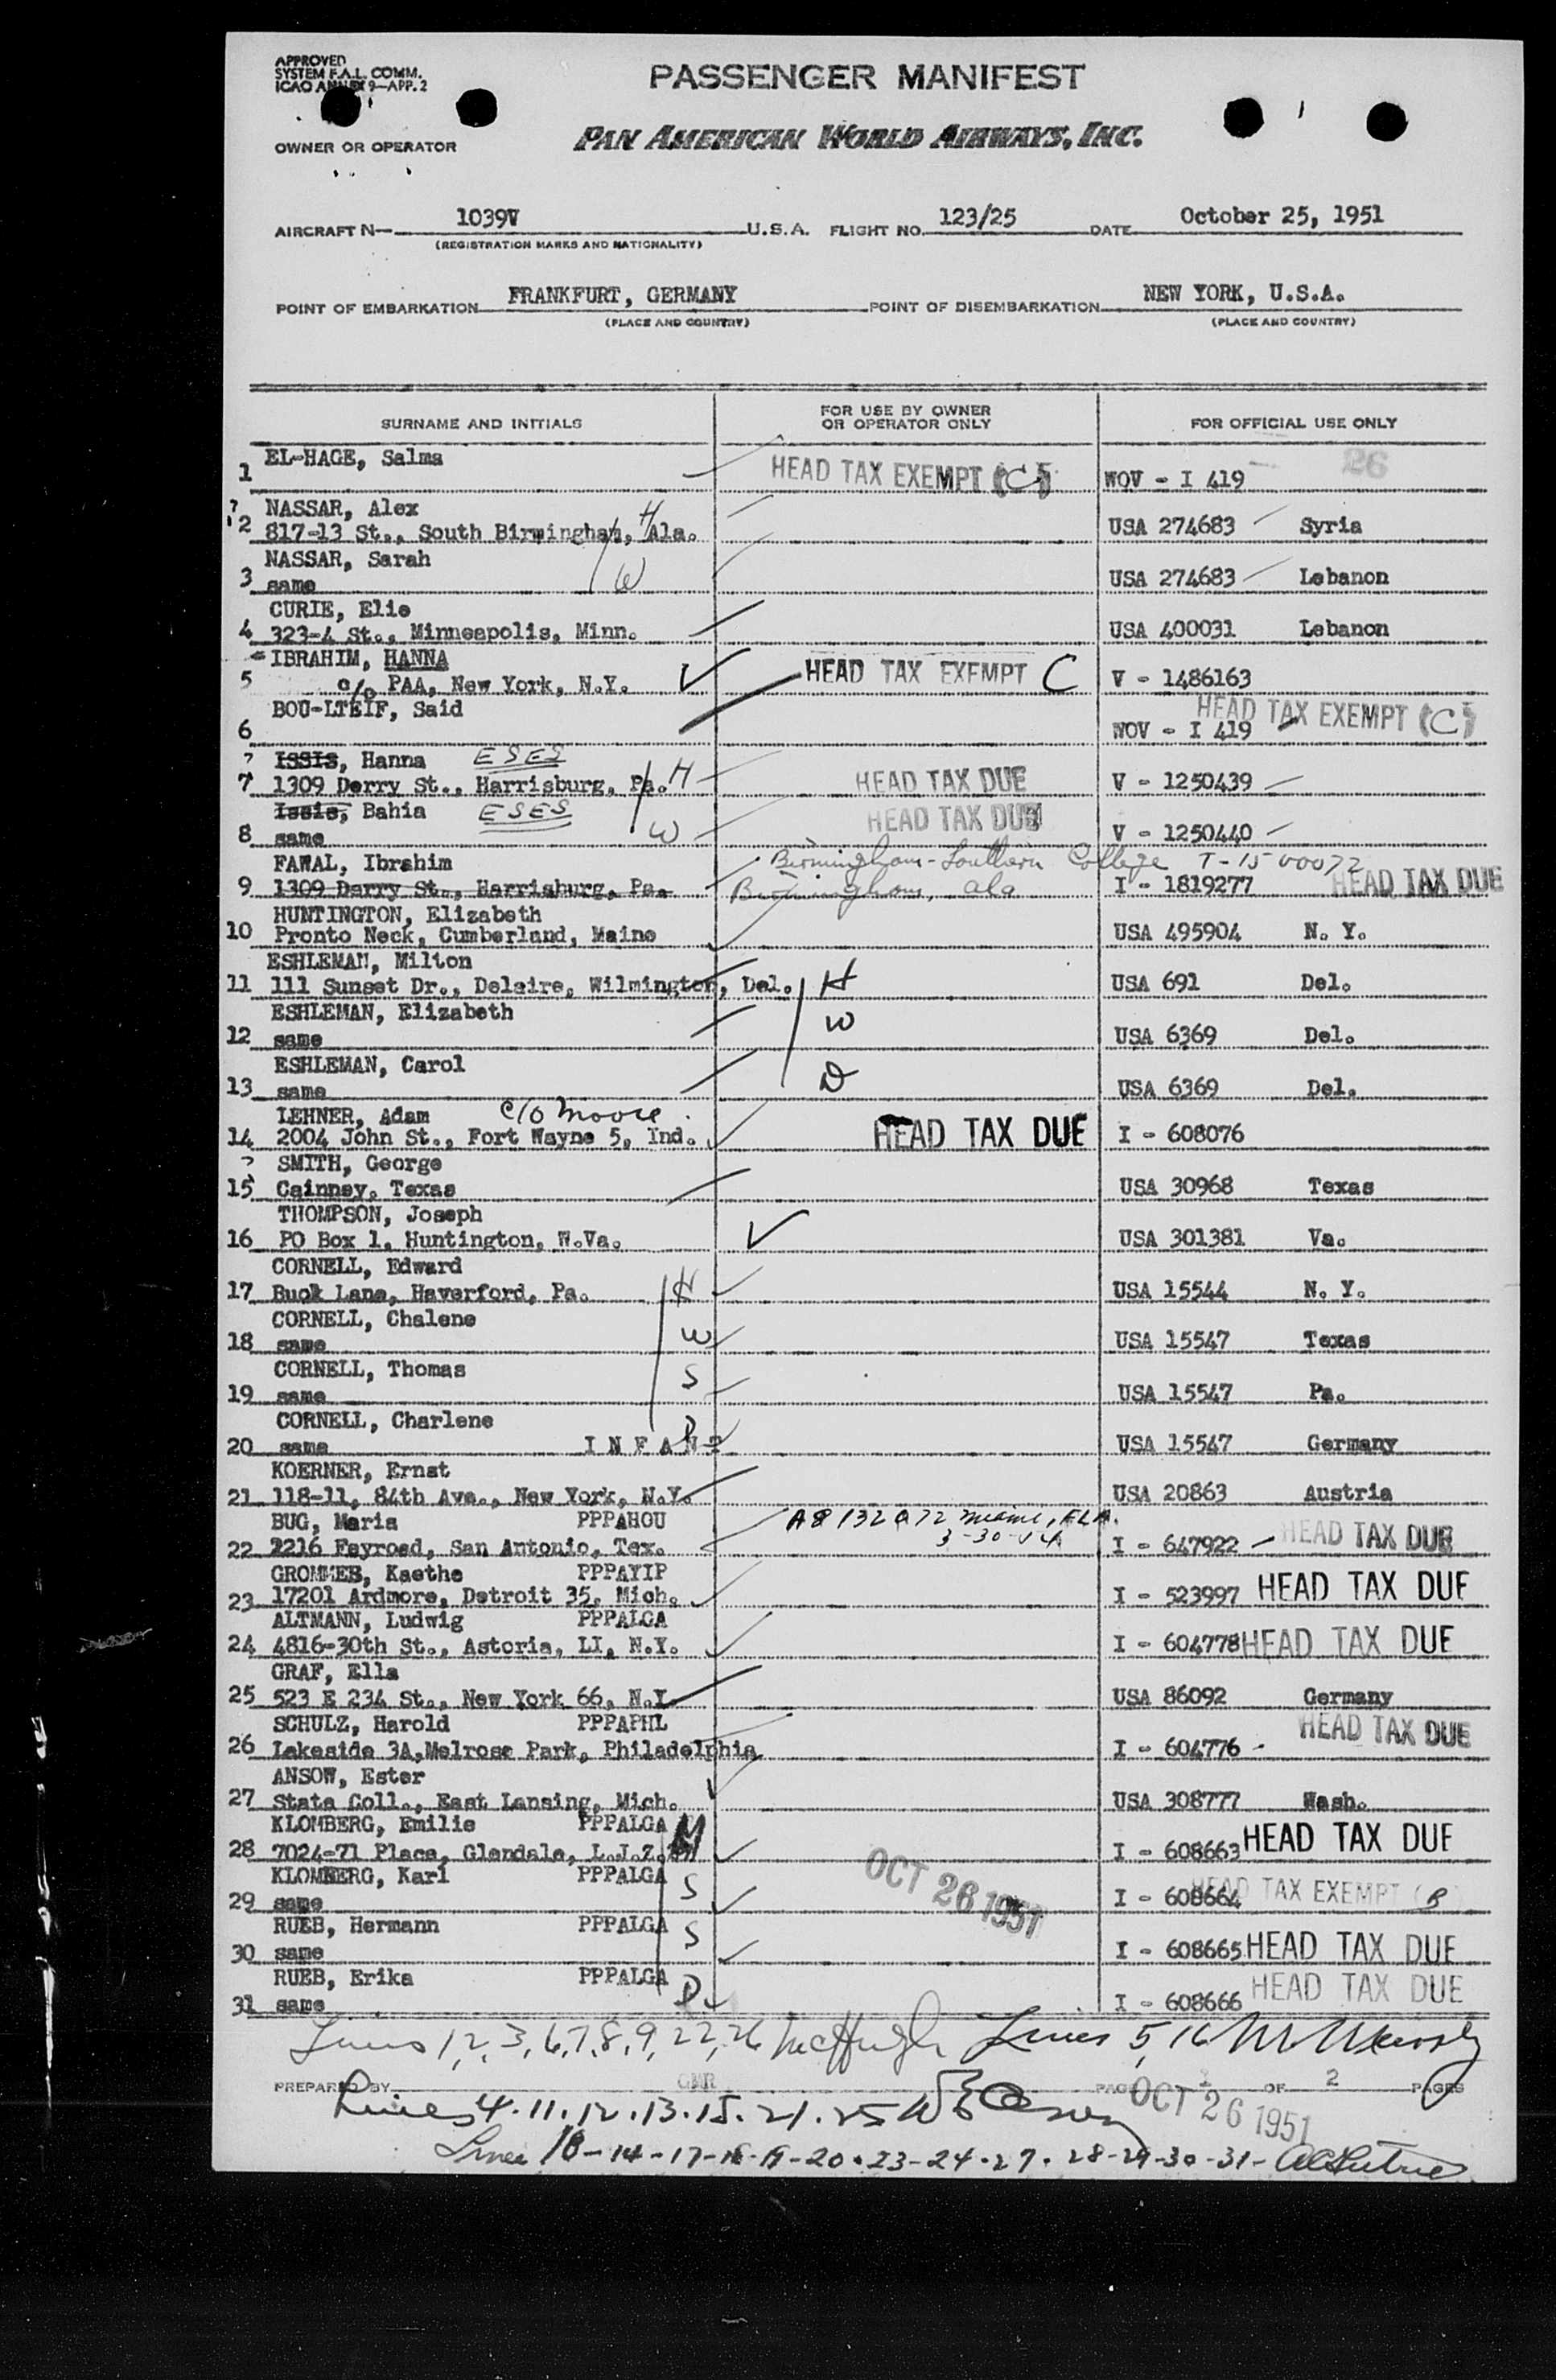 APPROVED
SYSTEM F.A.L. COMM.
ICAO ANNEX 9—APP. 2
PASSENGER MANIFEST
OWNER OR OPERATOR
PAN AMERICAN WORLD AIRWAYS, INC.
AIRCRAFT N— 1039V U.S.A. FLIGHT NO. 123/25 DATE October 25, 1951
(REGISTRATION MARKS AND NATIONALITY)
POINT OF EMBARKATION FRANKFURT, GERMANY POINT OF DISEMBARKATION NEW YORK, U.S.A.
(PLACE AND COUNTRY) (PLACE AND COUNTRY)
SURNAME AND INITIALS FOR USE BY OWNER OR OPERATOR ONLY FOR OFFICIAL USE ONLY
EL-HAGE, Salma 26
1 HEAD TAX EXEMPT (C) WOV - I 419
NASSAR, Alex H
2 817-13 St., South Birmingham, Ala. USA 274683 Syria
NASSAR, Sarah
3 same W USA 274683 Lebanon
CURIE, Elie
4 323-4 St., Minneapolis, Minn. USA 400031 Lebanon
IBRAHIM, HANNA HEAD TAX EXEMPT C
5 c/o PAA, New York, N.Y. V - 1486163
BOU-LTEIF, Said HEAD TAX EXEMPT (C)
6 WOV - I 419
ISSIS, Hanna ESES
7 1309 Derry St., Harrisburg, Pa. H HEAD TAX DUE V - 1250439
Issis, Bahia ESES HEAD TAX DUE
8 same W V - 1250440
FAWAL, Ibrahim Birmingham-Southern College T-1500072
9 1309 Derry St., Harrisburg, Pa. Birmingham, Ala I - 1819277 HEAD TAX DUE
HUNTINGTON, Elizabeth
10 Pronto Neck, Cumberland, Maine USA 495904 N. Y.
ESHLEMAN, Milton
11 111 Sunset Dr., Delaire, Wilmington, Del. H USA 691 Del.
ESHLEMAN, Elizabeth
12 same W USA 6369 Del.
ESHLEMAN, Carol
13 same D USA 6369 Del.
LEHNER, Adam c/o Moore
14 2004 John St., Fort Wayne 5, Ind. HEAD TAX DUE I - 608076
SMITH, George
15 Cainney, Texas USA 30968 Texas
THOMPSON, Joseph
16 PO Box 1, Huntington, W.Va. USA 301381 Va.
CORNELL, Edward
17 Buck Lane, Haverford, Pa. H USA 15544 N. Y.
CORNELL, Chalene
18 same W USA 15547 Texas
CORNELL, Thomas
19 same S USA 15547 Pa.
CORNELL, Charlene D
20 same INFANT USA 15547 Germany
KOERNER, Ernst
21 118-11, 84th Ave., New York, N.Y. USA 20863 Austria
BUG, Maria PPPAHOU A8 132 072 Miami, FLA.
22 2216 Fayroad, San Antonio, Tex. 3-30-54 I - 647922 HEAD TAX DUE
GROMMEB, Kaethe PPPAYIP
23 17201 Ardmore, Detroit 35, Mich. I - 523997 HEAD TAX DUE
ALTMANN, Ludwig PPPALGA
24 4816-30th St., Astoria, LI, N.Y. I - 604778 HEAD TAX DUE
GRAF, Ella
25 523 E 234 St., New York 66, N.Y. USA 86092 Germany
SCHULZ, Harold PPPAPHL HEAD TAX DUE
26 Lakeside 3A, Melrose Park, Philadelphia I - 604776
ANSOW, Ester
27 State Coll., East Lansing, Mich. USA 308777 Wash.
KLOMBERG, Emilie PPPALGA M
28 7024-71 Place, Glendale, L.J.Z. I - 608663 HEAD TAX DUE
KLOMBERG, Karl PPPALGA S OCT 26 1951
29 same I - 608664 HEAD TAX EXEMPT (B)
RUEB, Hermann PPPALGA S
30 same I - 608665 HEAD TAX DUE
RUEB, Erika PPPALGA D
31 same I - 608666 HEAD TAX DUE
Lines 1, 2, 3, 6, 7, 8, 9, 22, 26 McHugh Lines 5, 16
PREPARED BY GMR PAGE 1 OF 2 PAGES
OCT 26 1951
Lines 4.11.12.13.15.21.25
Lines 10-14-17-18-19-20.23-24.27.28-29-30-31-